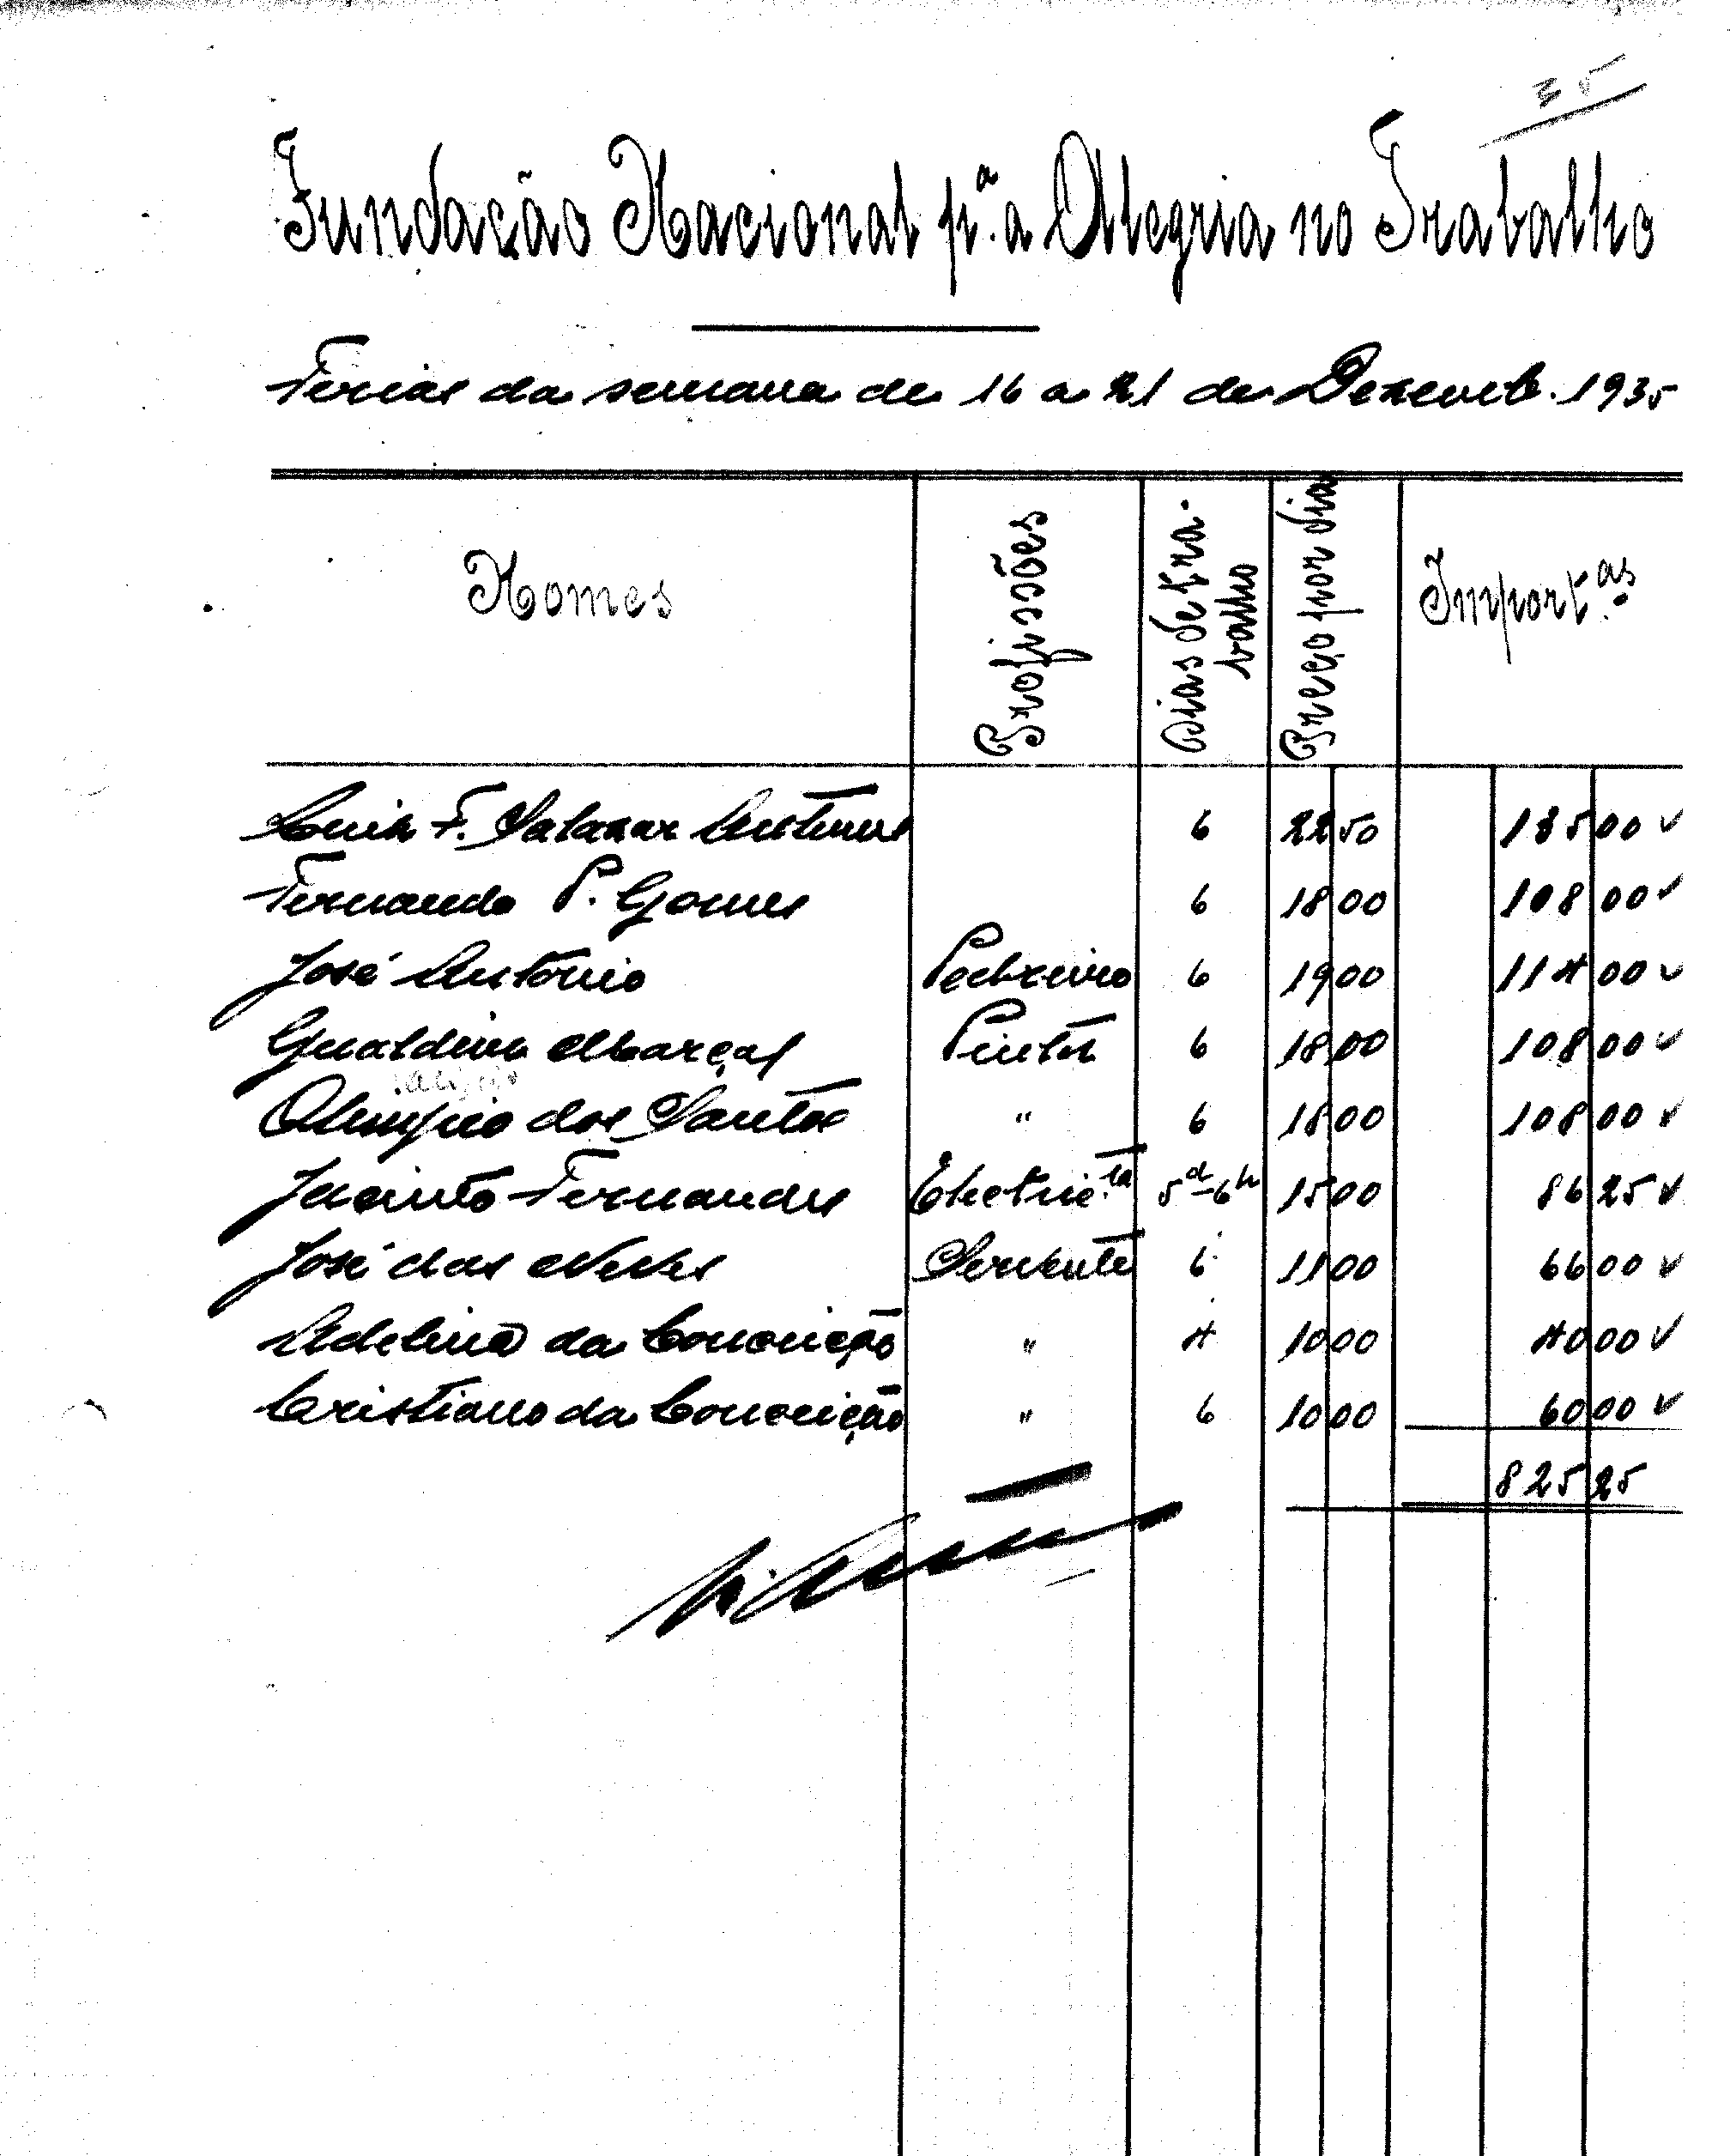 35
Fundação Nacional pª. a Alegria no Trabalho
Ferias da semana de 16 a 21 de Dezemb. 1935
Nomes Profissões Dias de tra-balho Preço por dia Import.as
Luiz F. Salazar Antunes 6 22 50 135 00
Fernando P. Gomes 6 18 00 108 00
José Antonio 6 19 00 114 00
Gualdino Marçal Pintor 6 18 00 108 00
Olimpio dos Santos " 6 18 00 108 00
Jacinto Fernandes Electric.ta 5d-6h 15 00 86 25
José das Neves Servente 6 11 00 66 00
Adelina da Conceição " 4 10 00 40 00
Cristiano da Conceição " 6 10 00 60 00
825 25